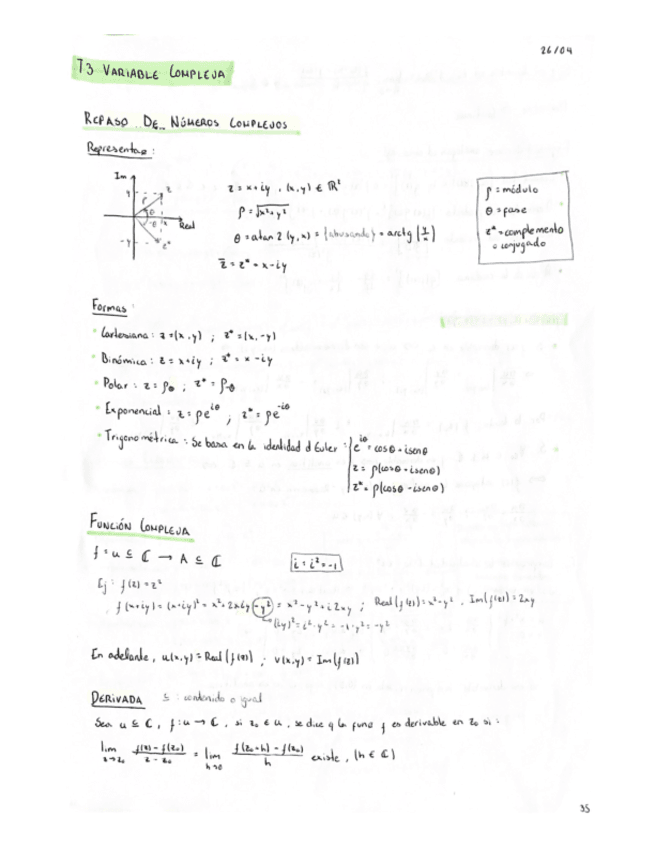 26/04
T3 VARIABLE COMPLEJA
REPASO DE NÚMEROS COMPLEJOS
Representar:
Im
y
z
ρ
θ
-θ
x
Real
-y
z*
z = x+iy , (x,y) ∈ ℝ²
ρ = √x²+y²
θ = atan2(y,x) = {abusando} = arctg (y/x)
z̅ = z* = x-iy
ρ = módulo
θ = fase
z* = complemento
o conjugado
Formas:
• Cartesiana: z=(x,y) ; z*=(x,-y)
• Binómica: z = x+iy ; z* = x-iy
• Polar: z = ρ_θ ; z* = ρ_-θ
• Exponencial: z = ρe^iθ ; z* = ρe^-iθ
• Trigonométrica: Se basa en la identidad d Euler: e^iθ = cosθ+isenθ
z = ρ(cosθ+isenθ)
z* = ρ(cosθ-isenθ)
FUNCIÓN COMPLEJA
f: u ⊆ ℂ → A ⊆ ℂ
i: i² = -1
Ej: f(z)=z²
f(x+iy) = (x+iy)² = x²+2xiy-y² = x²-y²+i2xy ; Real(f(z))=x²-y² , Im(f(z))=2xy
(iy)² = i²·y² = -1·y² = -y²
En adelante, u(x,y) = Real(f(z)) ; v(x,y) = Im(f(z))
DERIVADA ⊆: contenido o igual
Sea u ⊆ ℂ, f: u → ℂ, si z₀ ∈ u, se dice q la func f es derivable en z₀ si:
lim z→z₀ (f(z)-f(z₀))/(z-z₀) = lim h→0 (f(z₀+h)-f(z₀))/h existe, (h ∈ ℂ)
35